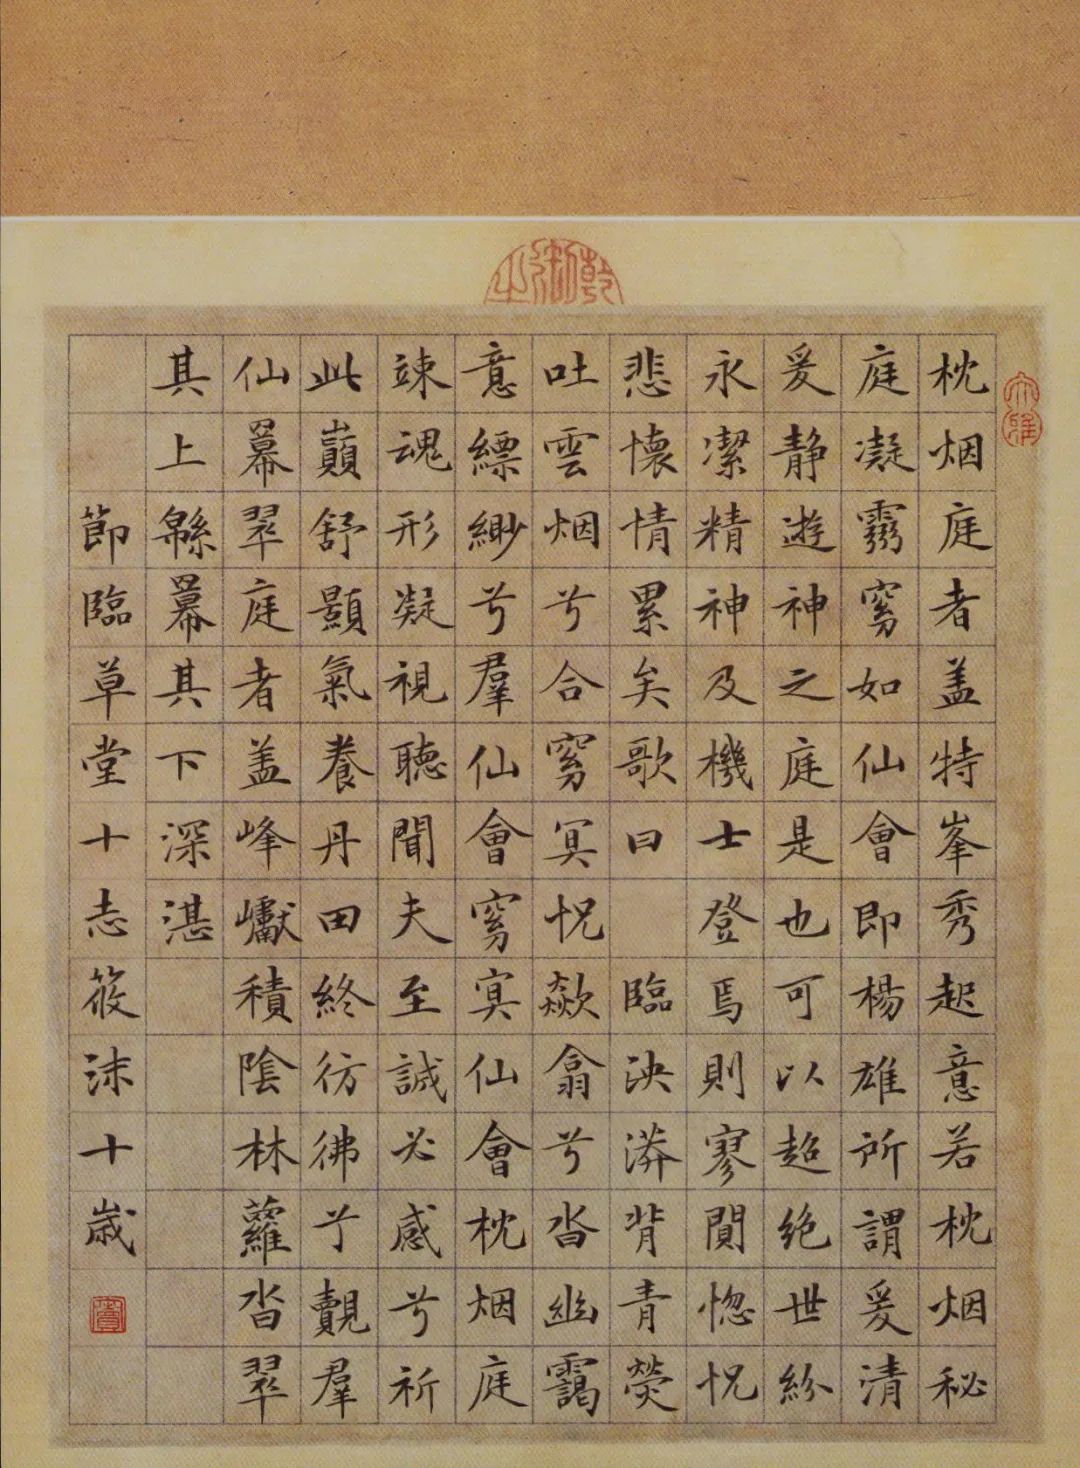 枕烟庭者盖特峯秀起意若枕烟秘
庭凝霧窅如仙會即楊雄所謂爰清
爰静遊神之庭是也可以超绝世紛
永潔精神及機士登焉則寥閴惚怳
悲懷情累矣歌曰 臨泱漭背青熒
吐雲烟兮合窅冥怳歘翕兮沓幽靄
意縹緲兮羣仙會窅冥仙會枕烟庭
竦魂形凝視聽聞夫至誠必感兮祈
此巔舒顥氣養丹田終彷彿兮覿羣
仙冪翠庭者盖峰巘積陰林蘿沓翠
其上緜冪其下深湛
節臨草堂十志筱沫十歲
大雅